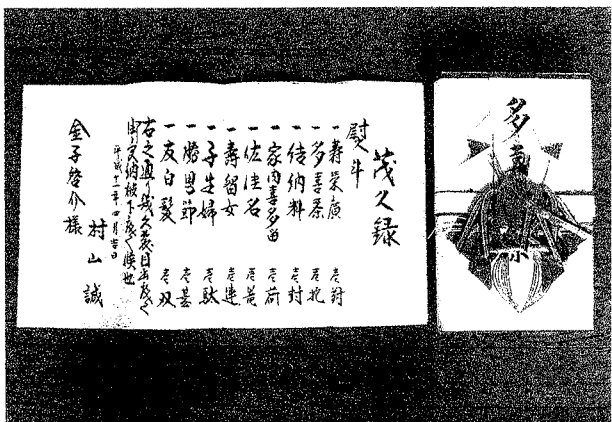 茂久録
熨斗
一 壽栄廣 壱対
一 多喜茶 壱
一 結納料 壱封
一 家内喜多留 壱荷
一 佐佳名 壱
一 壽留女 壱連
一 子生婦 壱駄
一 婚男節 壱基
一 友白髪 壱双
右之通り幾久敷目出度く
御受納被下度く候也
平成十二年四月吉日
村山誠
金子啓介様
多喜茶